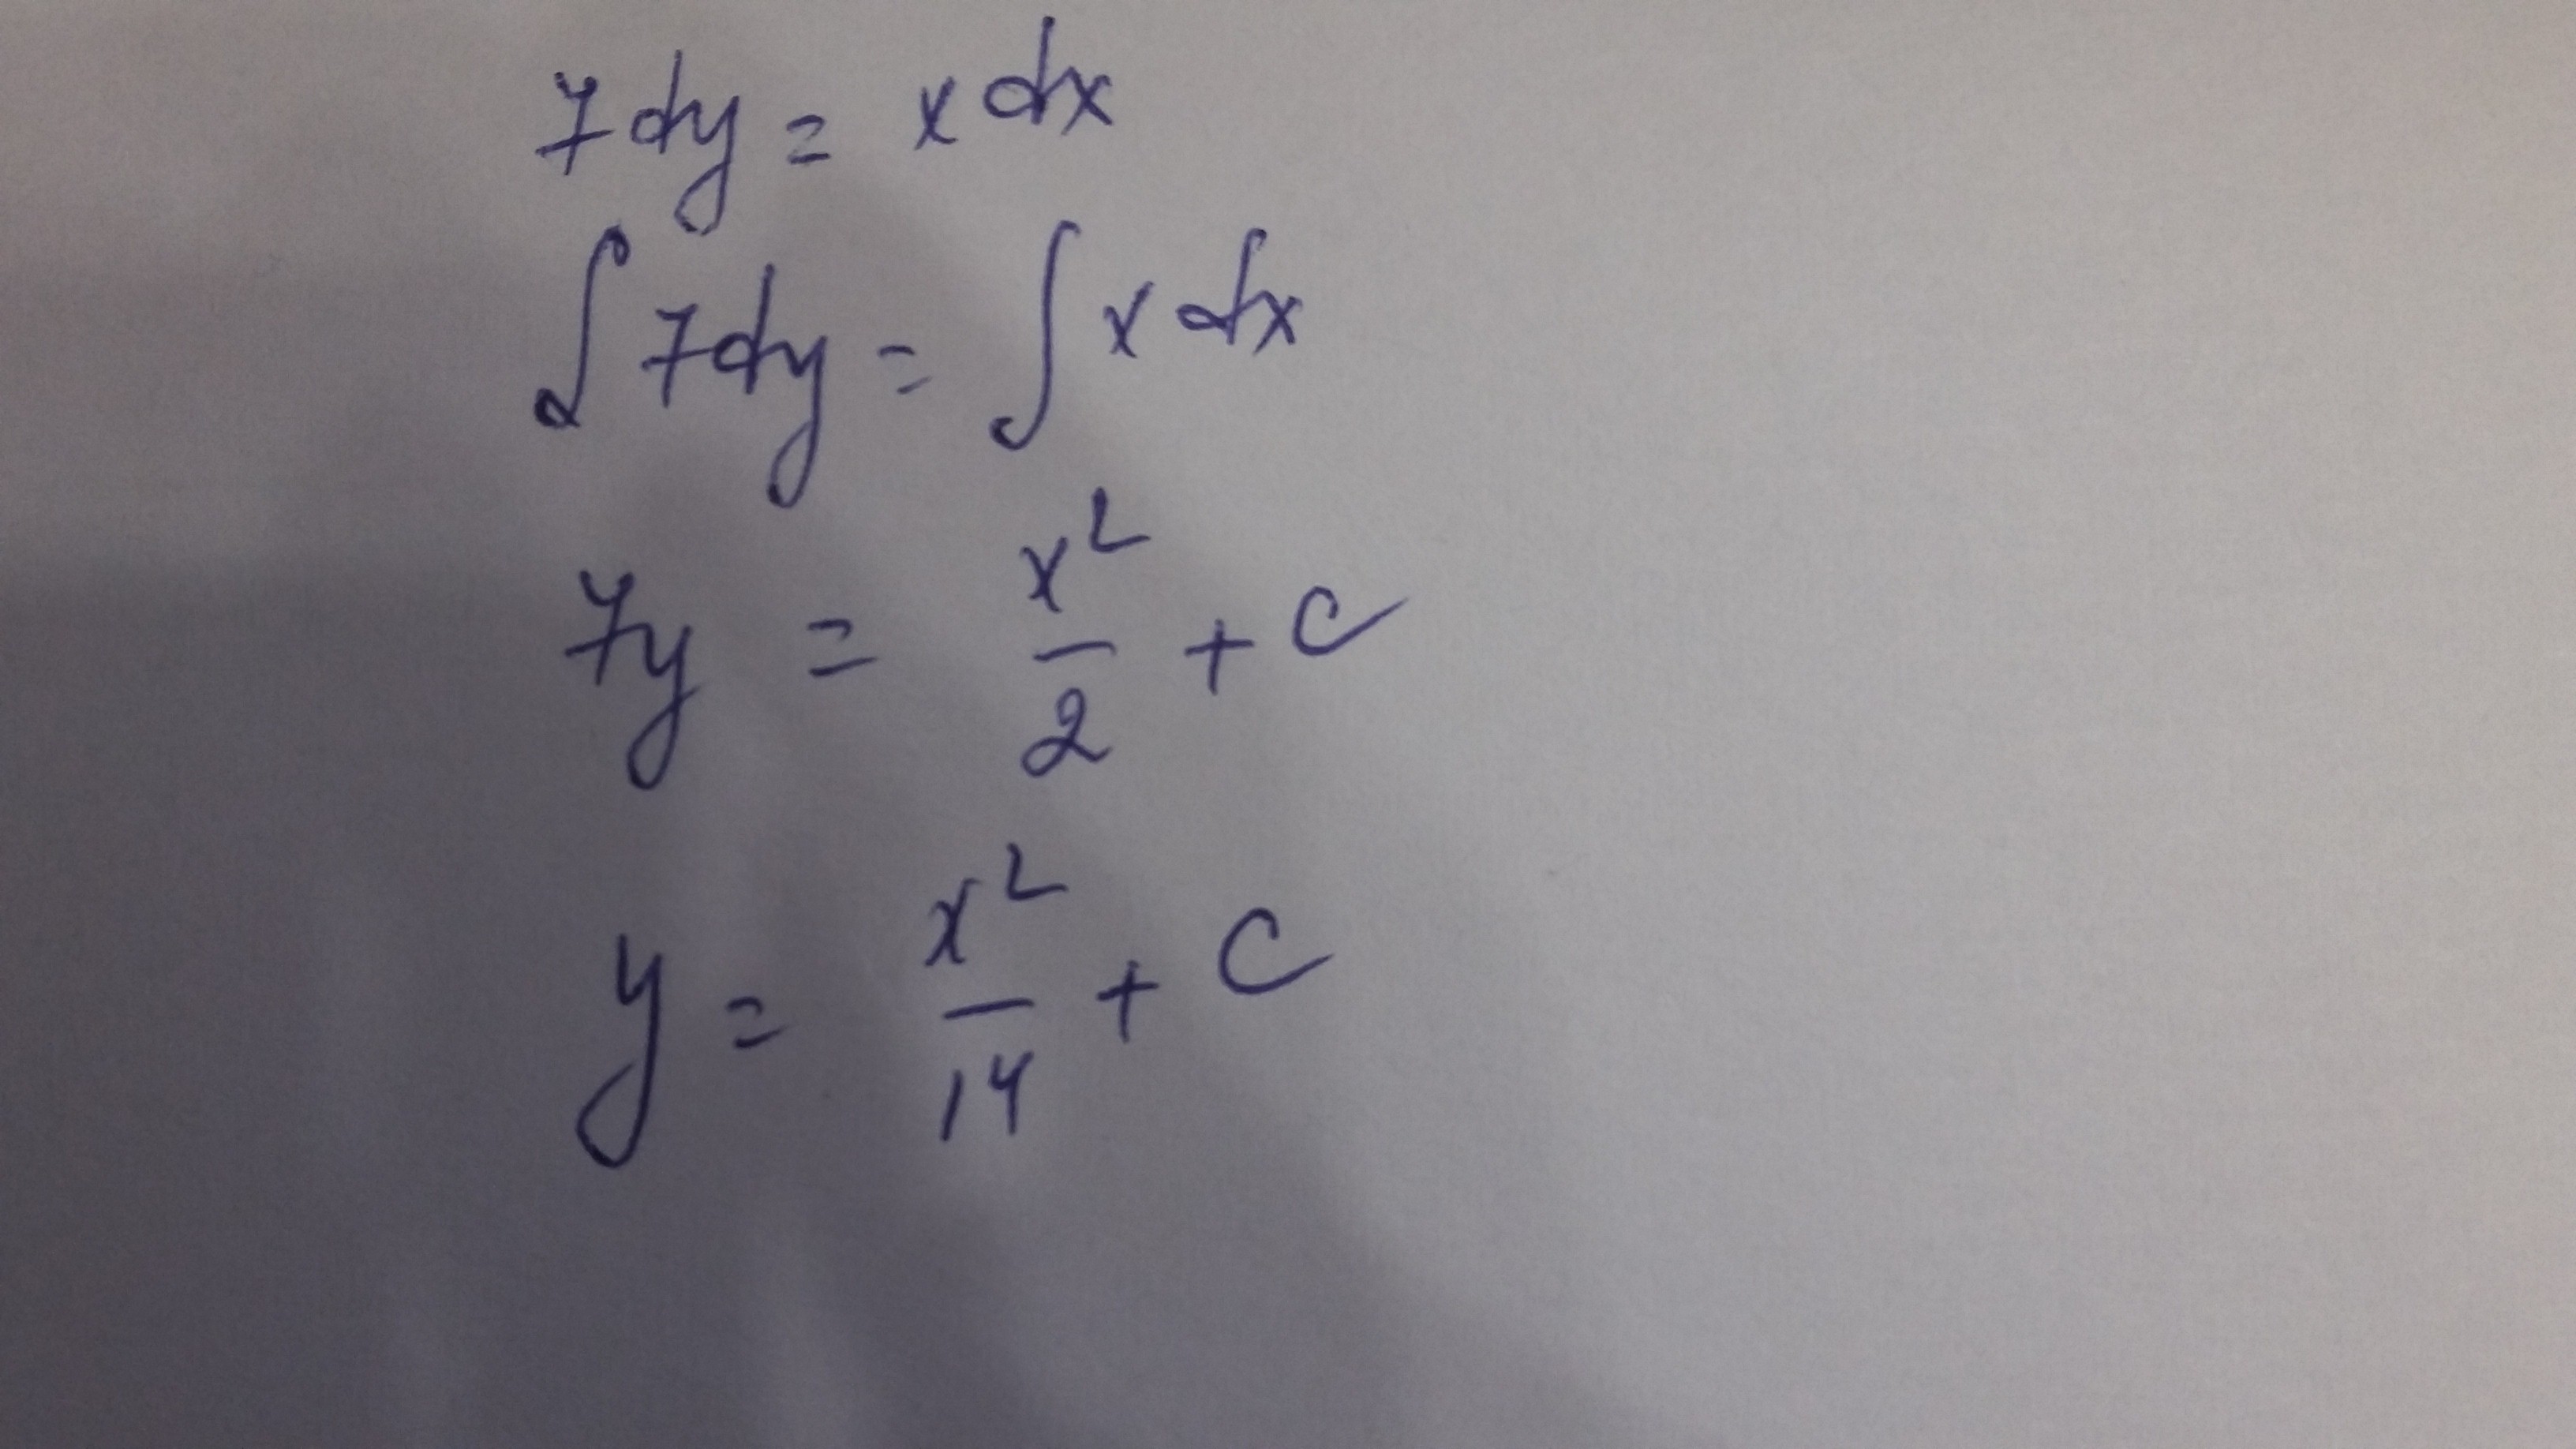 7dy = x dx
∫ 7dy = ∫ x dx
7y = x²/2 + c
y = x²/14 + c